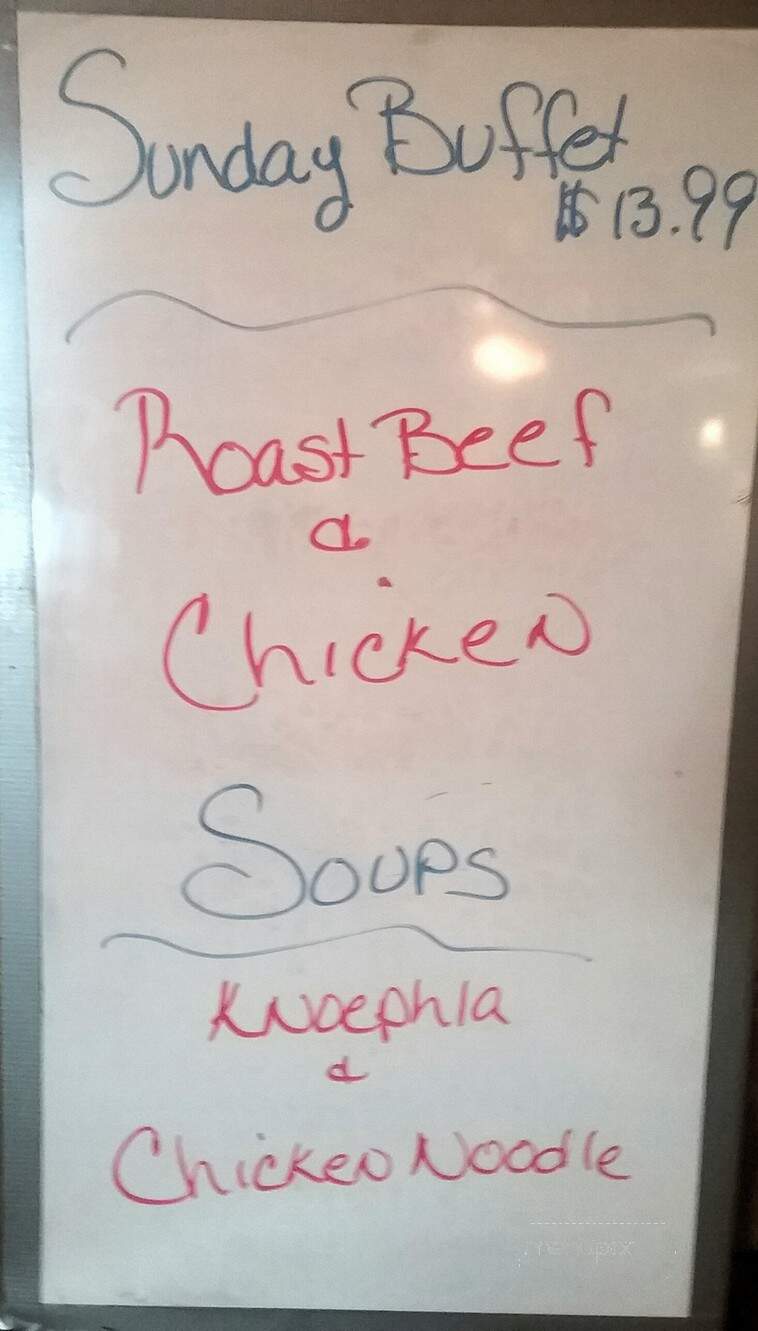 Sunday Buffet
$13.99
Roast Beef
&
Chicken
Soups
Knoephla
&
Chicken Noodle
menupix